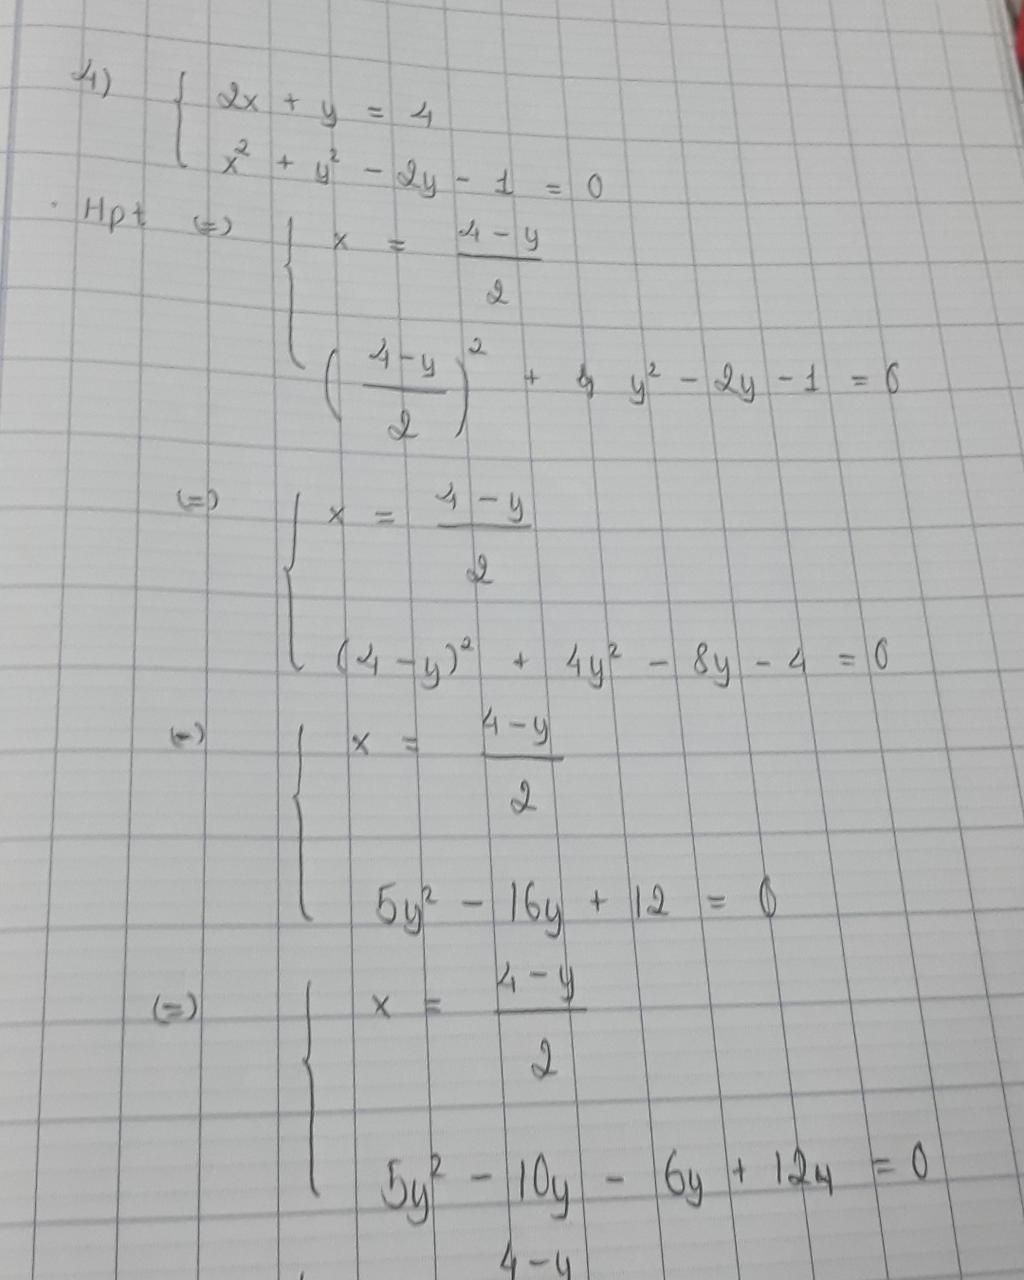 4) { 2x + y = 4
x² + y² - 2y - 1 = 0
. Hpt (=) { x = (4 - y)/2
((4 - y)/2)² + y² - 2y - 1 = 0
(=) { x = (4 - y)/2
(4 - y)² + 4y² - 8y - 4 = 0
(=) { x = (4 - y)/2
5y² - 16y + 12 = 0
(=) { x = (4 - y)/2
5y² - 10y - 6y + 12y = 0
4 - y